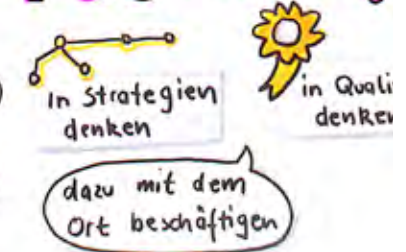 in Strategien
denken
in Quali
denken
dazu mit dem
Ort beschäftigen